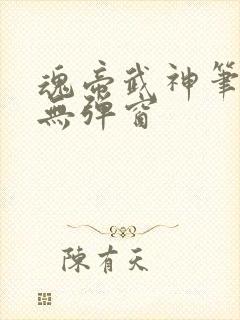 魂帝武神筆
無彈窗
陳有天